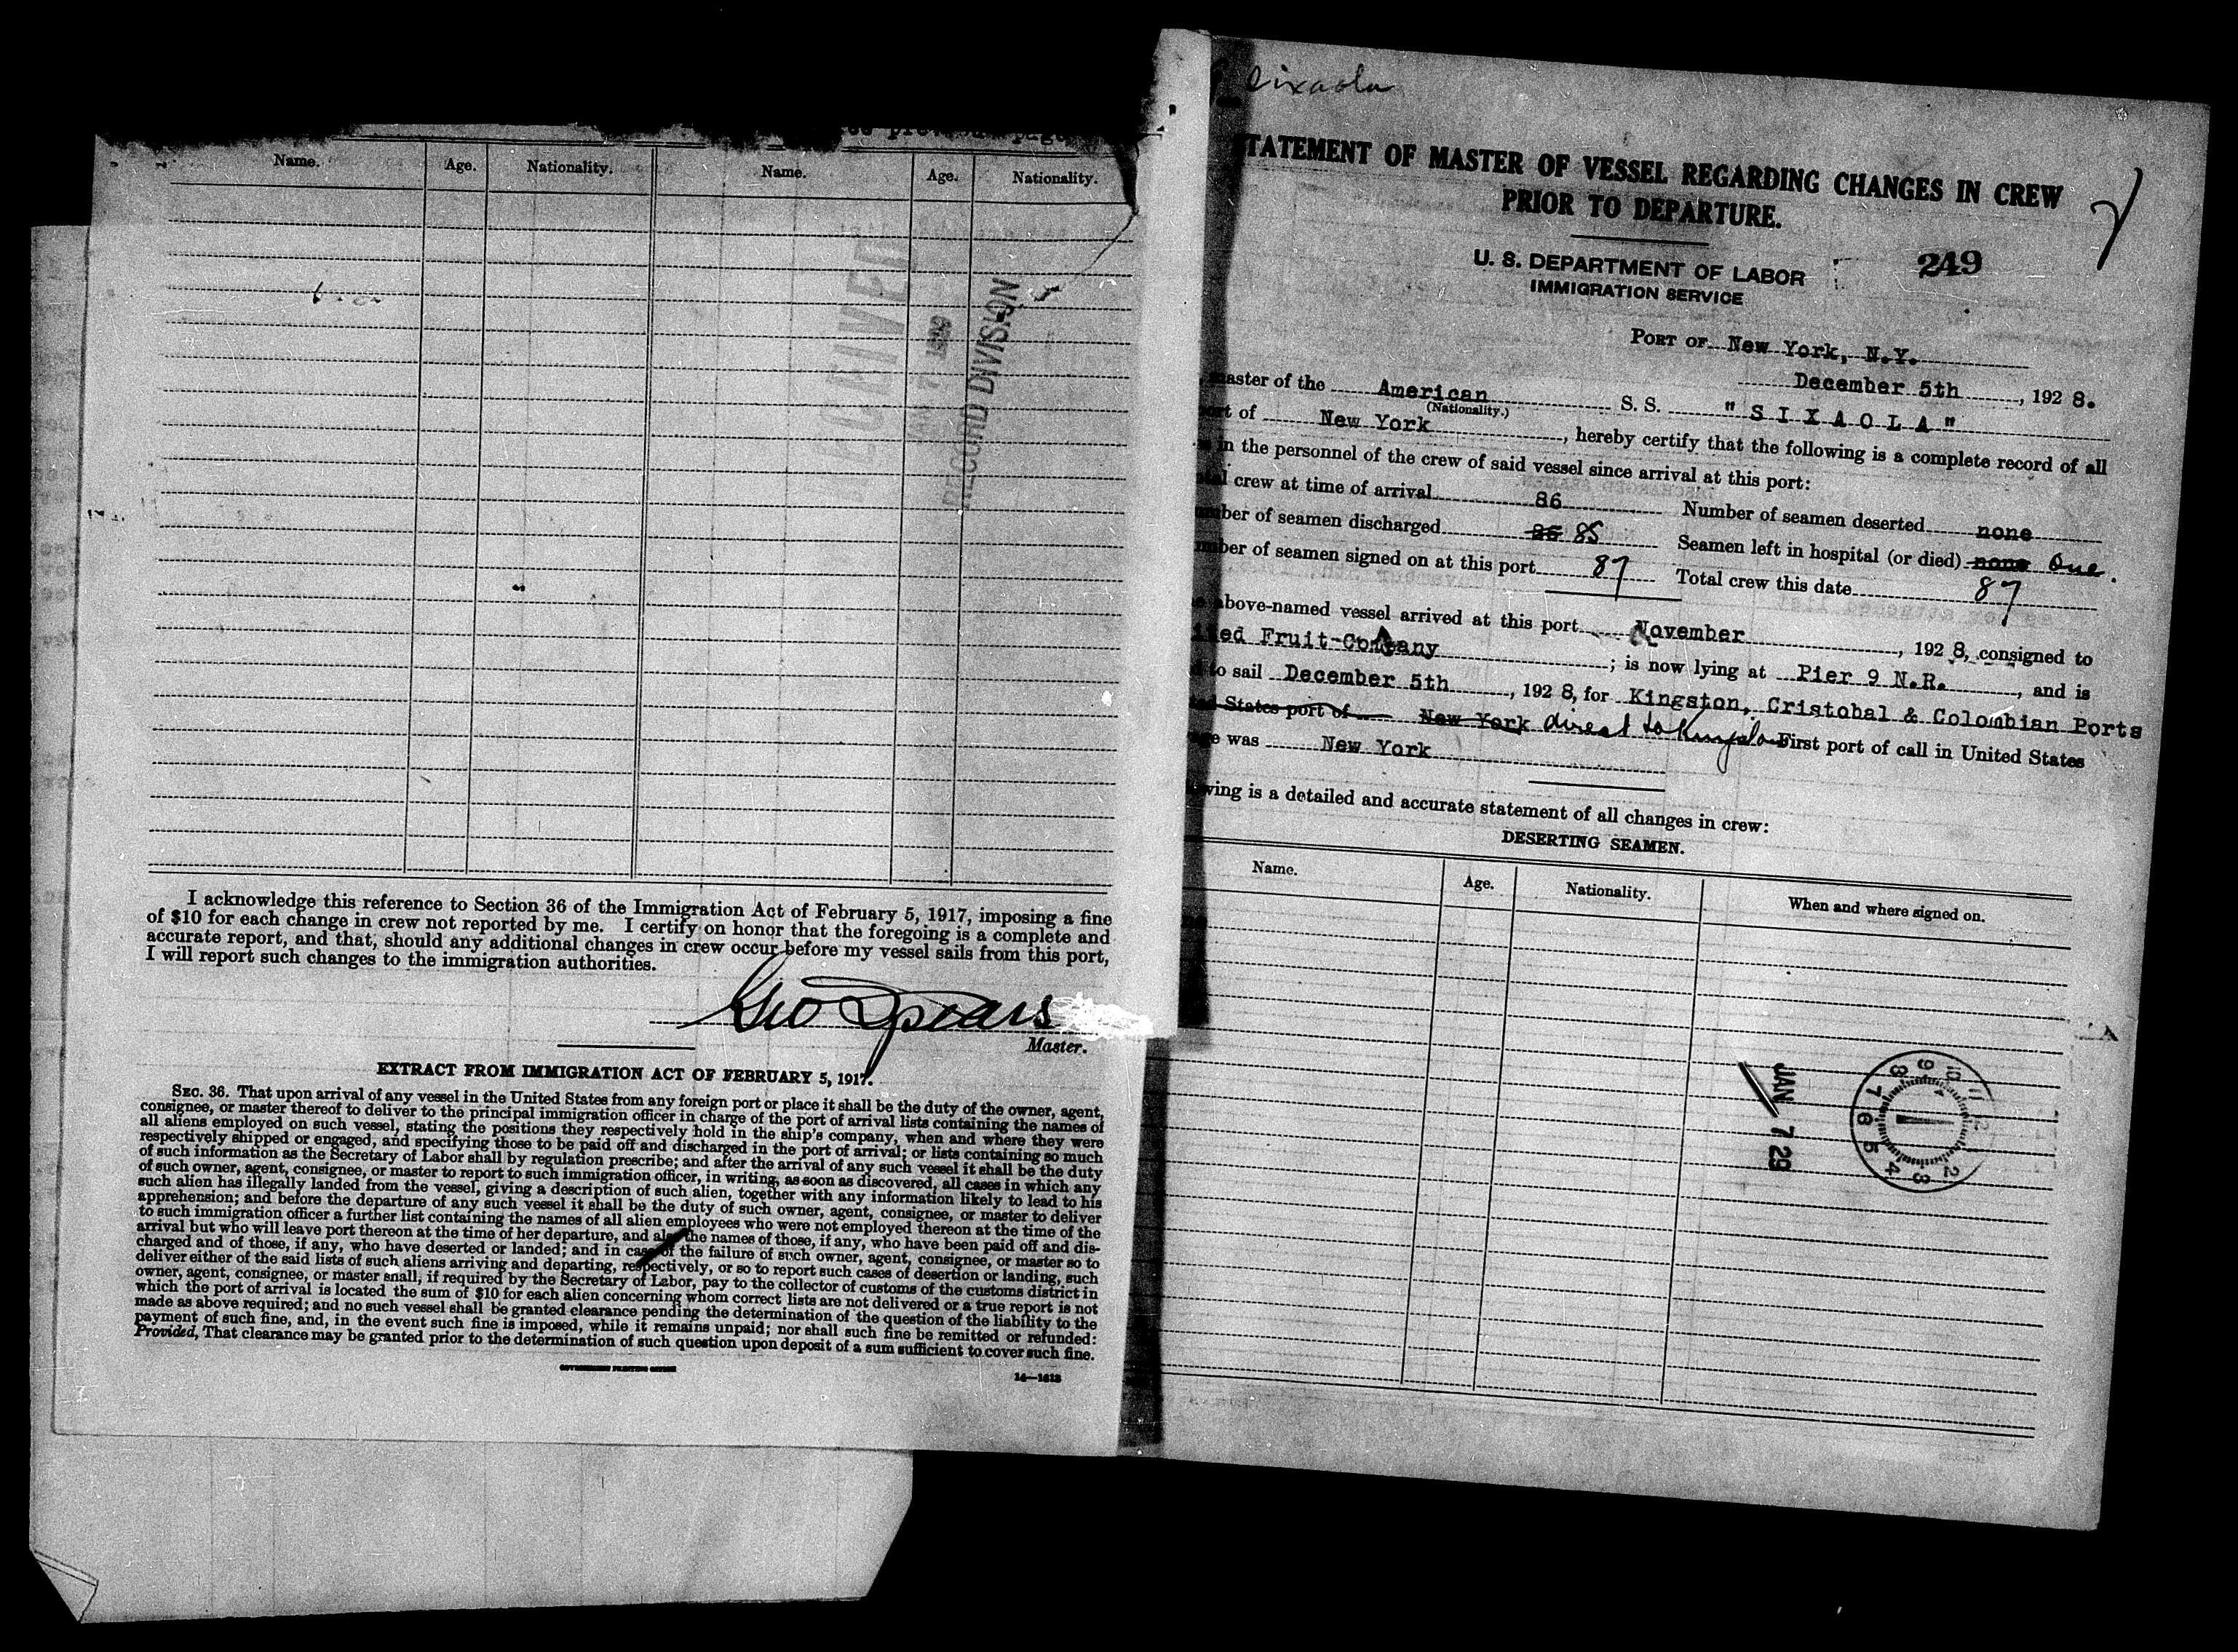 Name. Age. Nationality. Name. Age. Nationality.
RECEIVED
JAN 7 1929
RECORD DIVISION
I acknowledge this reference to Section 36 of the Immigration Act of February 5, 1917, imposing a fine
of $10 for each change in crew not reported by me. I certify on honor that the foregoing is a complete and
accurate report, and that, should any additional changes in crew occur before my vessel sails from this port,
I will report such changes to the immigration authorities.
Geo Spears
Master.
EXTRACT FROM IMMIGRATION ACT OF FEBRUARY 5, 1917.
SEC. 36. That upon arrival of any vessel in the United States from any foreign port or place it shall be the duty of the owner, agent,
consignee, or master thereof to deliver to the principal immigration officer in charge of the port of arrival lists containing the names of
all aliens employed on such vessel, stating the positions they respectively hold in the ship's company, when and where they were
respectively shipped or engaged, and specifying those to be paid off and discharged in the port of arrival; or lists containing so much
of such information as the Secretary of Labor shall by regulation prescribe; and after the arrival of any such vessel it shall be the duty
of such owner, agent, consignee, or master to report to such immigration officer, in writing, as soon as discovered, all cases in which any
such alien has illegally landed from the vessel, giving a description of such alien, together with any information likely to lead to his
apprehension; and before the departure of any such vessel it shall be the duty of such owner, agent, consignee, or master to deliver
to such immigration officer a further list containing the names of all alien employees who were not employed thereon at the time of the
arrival but who will leave port thereon at the time of her departure, and also the names of those, if any, who have been paid off and dis-
charged and of those, if any, who have deserted or landed; and in case of the failure of such owner, agent, consignee, or master so to
deliver either of the said lists of such aliens arriving and departing, respectively, or so to report such cases of desertion or landing, such
owner, agent, consignee, or master shall, if required by the Secretary of Labor, pay to the collector of customs of the customs district in
which the port of arrival is located the sum of $10 for each alien concerning whom correct lists are not delivered or a true report is not
made as above required; and no such vessel shall be granted clearance pending the determination of the question of the liability to the
payment of such fine, and, in the event such fine is imposed, while it remains unpaid; nor shall such fine be remitted or refunded:
Provided, That clearance may be granted prior to the determination of such question upon deposit of a sum sufficient to cover such fine.
GOVERNMENT PRINTING OFFICE
14—1613
Sixaola
STATEMENT OF MASTER OF VESSEL REGARDING CHANGES IN CREW
PRIOR TO DEPARTURE.
U. S. DEPARTMENT OF LABOR
IMMIGRATION SERVICE
249
PORT OF New York, N.Y.
December 5th, 192 8.
master of the American S. S. "SIXAOLA"
(Nationality.)
port of New York, hereby certify that the following is a complete record of all
in the personnel of the crew of said vessel since arrival at this port:
crew at time of arrival 86 Number of seamen deserted none
number of seamen discharged 85 Seamen left in hospital (or died) none One.
number of seamen signed on at this port 87 Total crew this date 87
above-named vessel arrived at this port November, 192 8, consigned to
United Fruit Company; is now lying at Pier 9 N.R., and is
to sail December 5th, 192 8, for Kingston, Cristobal & Colombian Ports
States port of New York direct to Kingston First port of call in United States
was New York
owing is a detailed and accurate statement of all changes in crew:
DESERTING SEAMEN.
Name. Age. Nationality. When and where signed on.
JAN 7 29